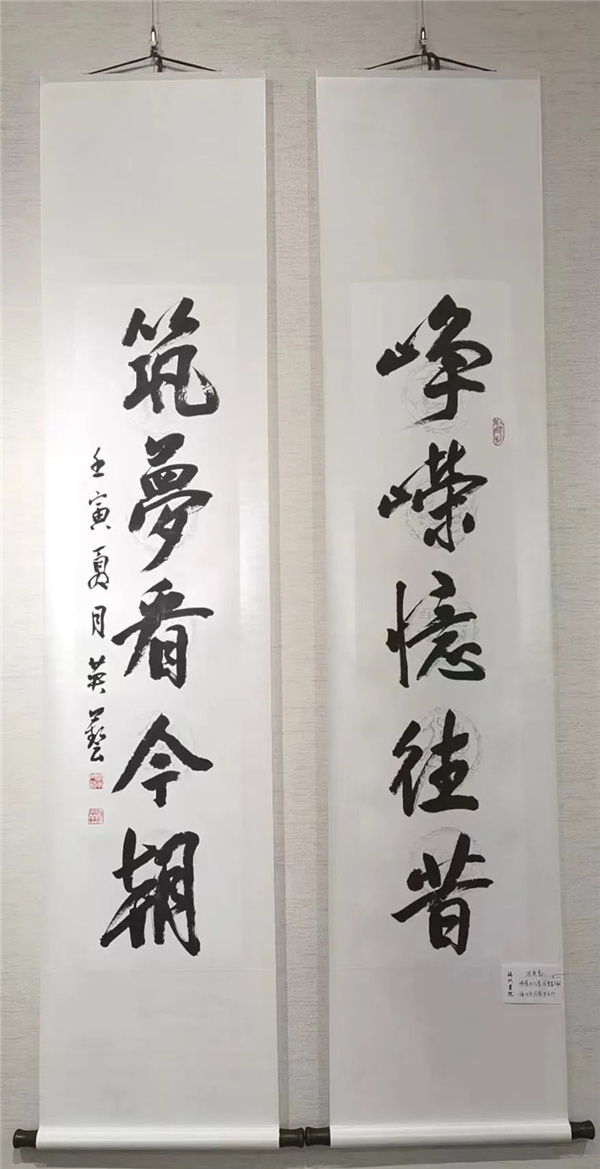 峥嵘憶往昔
筑夢看今朝
壬寅夏月英藝